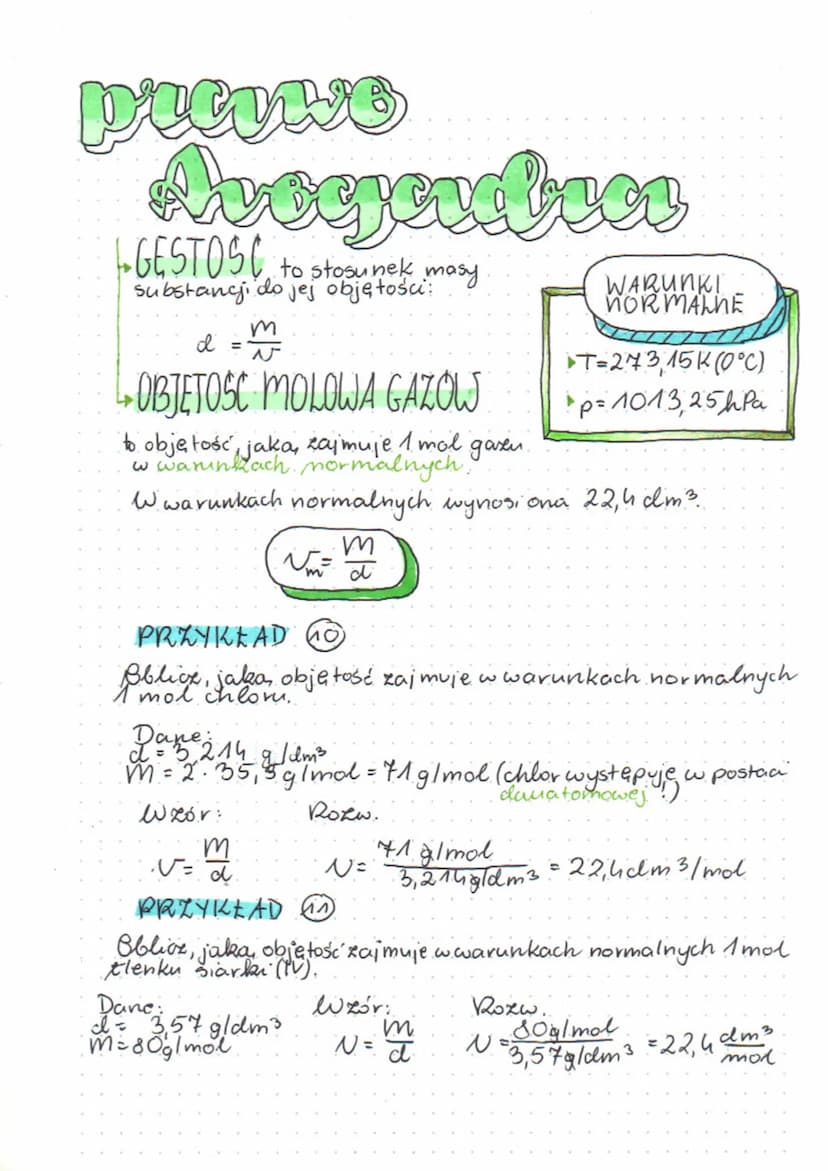 prawo
Avogadra
GĘSTOŚĆ to stosunek masy
substancji do jej objętości:
d = m/v
WARUNKI
NORMALNE
T=273,15K (0°C)
p= 1013,25hPa
OBJĘTOŚĆ MOLOWA GAZÓW
to objętość, jaką zajmuje 1 mol gazu
w warunkach normalnych.
W warunkach normalnych wynosi ona 22,4 dm³.
Vm = M/d
PRZYKŁAD 10
Oblicz, jaką objętość zajmuje w warunkach normalnych
1 mol chloru.
Dane:
d = 3,214 g/dm³
M = 2 · 35,5 g/mol = 71 g/mol (chlor występuje w postaci
dwuatomowej!)
Wzór: Rozw.
V = M/d V = 71 g/mol / 3,214g/dm³ = 22,4dm³/mol
PRZYKŁAD 11
Oblicz, jaką objętość zajmuje w warunkach normalnych 1 mol
tlenku siarki (IV).
Dane: Wzór: Rozw.
d = 3,57 g/dm³
M = 80g/mol V = M/d V = 80g/mol / 3,57g/dm³ = 22,4 dm³/mol